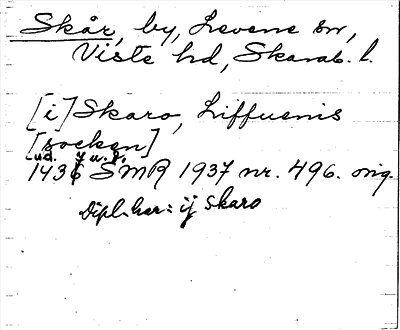 Skår, by, Levene sn,
Viste hd, Skarab. l.
[i] Skaro, Liffuenis
[socken]
ud.
1436 SMR 1937 nr. 496. orig.
Dipl. har: ij Skaro